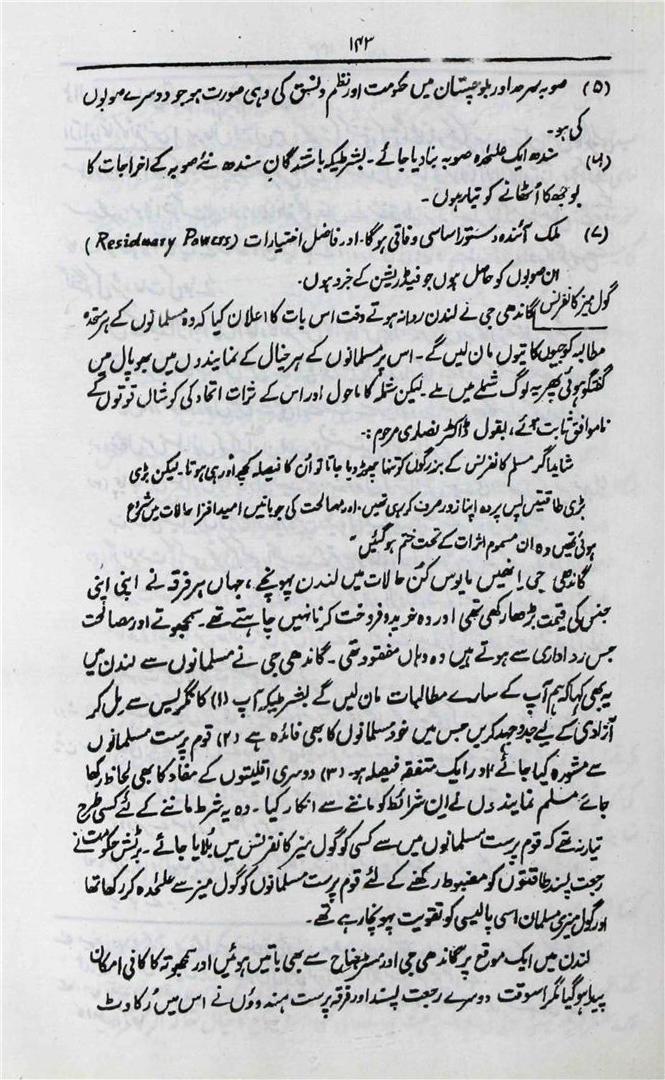 ۱۴۳
(۵) صوبہ سرحد اور بلوچستان میں حکومت اور نظم و نسق کی وہی صورت ہو جو دوسرے صوبوں
کی ہو۔
(۶) سندھ ایک علیٰحدہ صوبہ بنا دیا جائے۔ بشرطیکہ باشندگانِ سندھ نئے صوبہ کے اخراجات کا
بوجھ کا اُٹھانے کو تیار ہوں۔
(۷) ملک آئندہ دستور اساسی وفاقی ہوگا۔ اور فاضل اختیارات (Residuary Powers)
ان صوبوں کو حاصل ہوں جو فیڈریشن کے جزو ہوں۔
گول میز کانفرنس گاندھی جی نے لندن روانہ ہوتے وقت اس بات کا اعلان کیا کہ وہ مسلمانوں کے ہر متحدہ
مطالبہ کو جیوں کا تیوں مان لیں گے۔ اس پر مسلمانوں کے ہر خیال کے نمایندوں میں بھوپال میں
گفتگو ہوئی پھر یہ لوگ شملے میں ملے۔ لیکن شملہ کا ماحول اور اس کے ثرات اتحاد کی کوشاں قوتوں کے
ناموافق ثابت ہوئے، بقول ڈاکٹر نصاری مرحوم:۔
شاید اگر مسلم کانفرنس کے بزرگوں کو تنہا چھوڑ دیا جاتا تو اُن کا فیصلہ کچھ اور ہی ہوتا۔ لیکن بڑی
بڑی طاقتیں پس پردہ اپنا زور صرف کر رہی تھیں۔ اور مصالحت کی جو باتیں امید افزا حالات میں شروع
ہوئی تھیں وہ ان مسموم اثرات کے تحت ختم ہو گئیں"
گاندھی جی انھیں مایوس کُن حالات میں لندن پہونچے، جہاں ہر فرقہ نے اپنی اپنی
جنس کی قیمت بڑھا رکھی تھی اور وہ خرید و فروخت کرنا نہیں چاہتے تھے۔ سمجھوتے اور مصالحت
جس رواداری سے ہوتے ہیں وہ وہاں مفقود تھی۔ گاندھی جی نے مسلمانوں سے لندن میں
یہ بھی کہا کہ ہم آپ کے سارے مطالبات مان لیں گے بشرطیکہ آپ (۱) کانگریس سے مل کر
آزادی کے لیے جدوجہد کریں جس میں خود مسلمانوں کا بھی فائدہ ہے (۲) قوم پرست مسلمانوں
سے مشورہ کیا جائے اور ایک متفقہ فیصلہ ہو۔ (۳) دوسری اقلیتوں کے مفاد کا بھی لحاظ رکھا
جائے مسلم نمایندوں نے ان شرائط کو ماننے سے انکار کیا۔ وہ یہ شرط ماننے کے لئے کسی طرح
تیار نہ تھے کہ قوم پرست مسلمانوں میں سے کسی کو گول میز کانفرنس میں بُلایا جائے۔ برٹش حکومت نے
رجعت پسند طاقتوں کو مضبوط رکھنے کے لئے قوم پرست مسلمانوں کو گول میز سے علٰحدہ کر رکھا تھا
اور گول میزی مسلمان اسی پالیسی کو تقویت پہونچا رہے تھے۔
لندن میں ایک موقع پر گاندھی جی اور مسٹر جناح سے بھی باتیں ہوئیں اور سمجھوتہ کا کافی امکان
پیدا ہو گیا مگر اسوقت دوسرے رجعت پسند اور فرقہ پرست ہندوؤں نے اس میں رُکاوٹ